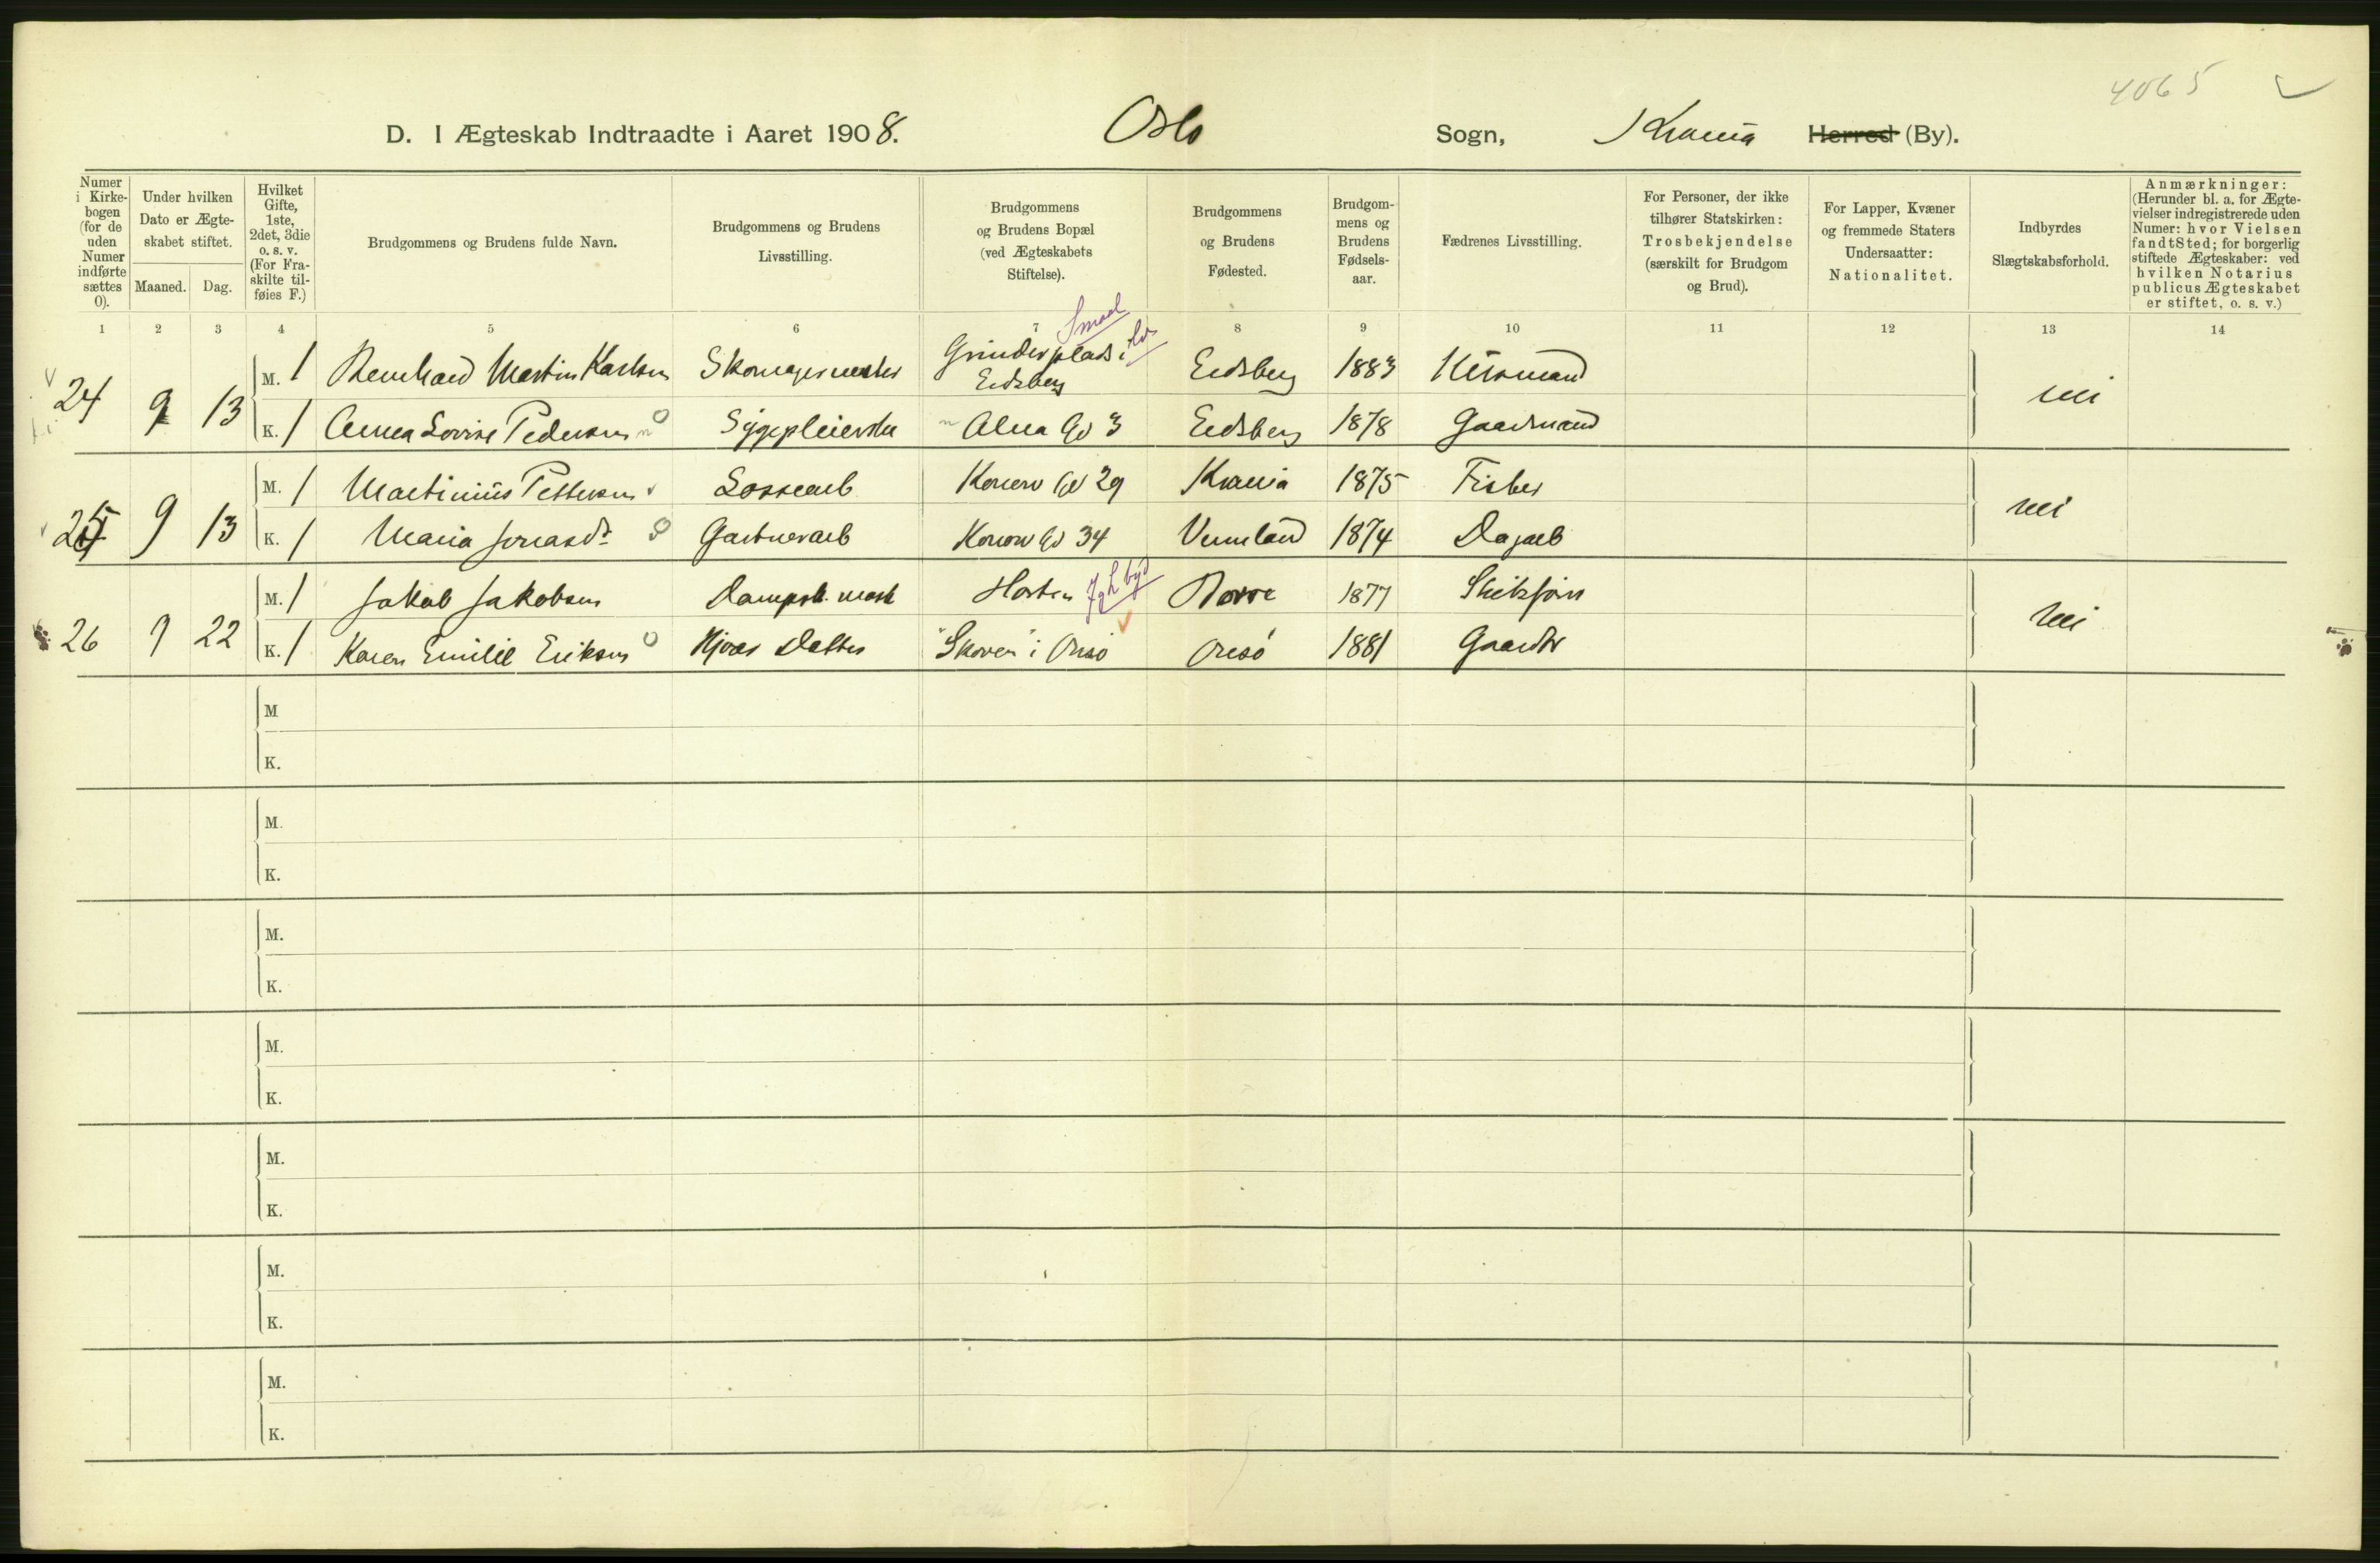 4065
D. I Ægteskab Indtraadte i Aaret 1908. Oslo Sogn, Krania Herred (By).
Numer i Kirkebogen (for de uden Numer indførte sættes 0).
Under hvilken Dato er Ægteskabet stiftet.
Maaned. Dag.
Hvilket Gifte, 1ste, 2det, 3die o. s. v. (For Fraskilte tilføies F.)
Brudgommens og Brudens fulde Navn.
Brudgommens og Brudens Livsstilling.
Brudgommens og Brudens Bopæl (ved Ægteskabets Stiftelse).
Brudgommens og Brudens Fødested.
Brudgommens og Brudens Fødselsaar.
Fædrenes Livsstilling.
For Personer, der ikke tilhører Statskirken: Trosbekjendelse (særskilt for Brudgom og Brud).
For Lapper, Kvæner og fremmede Staters Undersaatter: Nationalitet.
Indbyrdes Slægtskabsforhold.
Anmærkninger: (Herunder bl. a. for Ægtevielser indregistrerede uden Numer: hvor Vielsen fandt Sted; for borgerlig stiftede Ægteskaber: ved hvilken Notarius publicus Ægteskabet er stiftet, o. s. v.)
1 2 3 4 5 6 7 8 9 10 11 12 13 14
Smaal
24 9 13 M. 1 Bernhard Martin Karlsen Skomagermester Grinderplads i Eidsberg Eidsberg 1883 Husmand nei
K. 1 Anna Lovise Pedersen Sygepleierske Alna Gd 3 Eidsberg 1878 Gaardmand
25 9 13 M. 1 Martinius Pettersen Lossearb Konow Gd 29 Krania 1875 Fisker nei
K. 1 Maria Jonasdr Gartnerarb Konow Gd 34 Vermland 1874 Dagarb
26 9 22 M. 1 Jakob Jakobsen Dampsk. mask Horten Borre 1877 nei
K. 1 Karen Emilie Eriksen Hjvær Datter "Skoven" i Onsø Onsø 1881 Gaardbr
M
K.
M.
K.
M.
K.
M.
K.
M.
K.
M.
K.
M.
K.